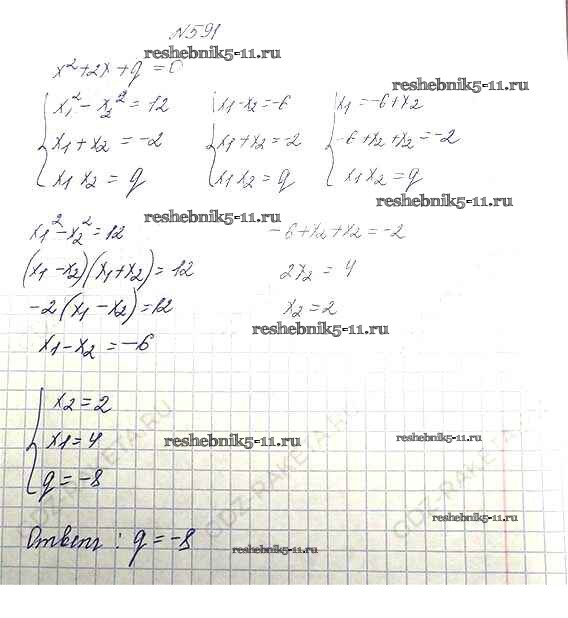 №591
reshebnik5-11.ru
x² + 2x + q = 0
reshebnik5-11.ru
x₁² - x₂² = 12 x₁ - x₂ = -6 x₁ = -6 + x₂
x₁ + x₂ = -2 x₁ + x₂ = -2 -6 + x₂ + x₂ = -2
x₁ x₂ = q x₁ x₂ = q x₁ x₂ = q
reshebnik5-11.ru
reshebnik5-11.ru
x₁² - x₂² = 12 -6 + x₂ + x₂ = -2
(x₁ - x₂)(x₁ + x₂) = 12 2x₂ = 4
-2(x₁ - x₂) = 12 x₂ = 2
reshebnik5-11.ru
x₁ - x₂ = -6
x₂ = 2
x₁ = 4
reshebnik5-11.ru
reshebnik5-11.ru
q = -8
GDZ-RAKETA.RU
GDZ-RAKETA.RU
GDZ-RAKETA.RU
reshebnik5-11.ru
Ответ: q = -8
reshebnik5-11.ru